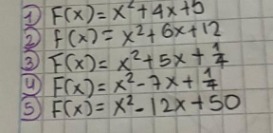 ① F(x)=x²+4x+5
② f(x)=x²+6x+12
③ F(x)=x²+5x+1/4
④ F(x)=x²-7x+1/4
⑤ F(x)=x²-12x+50